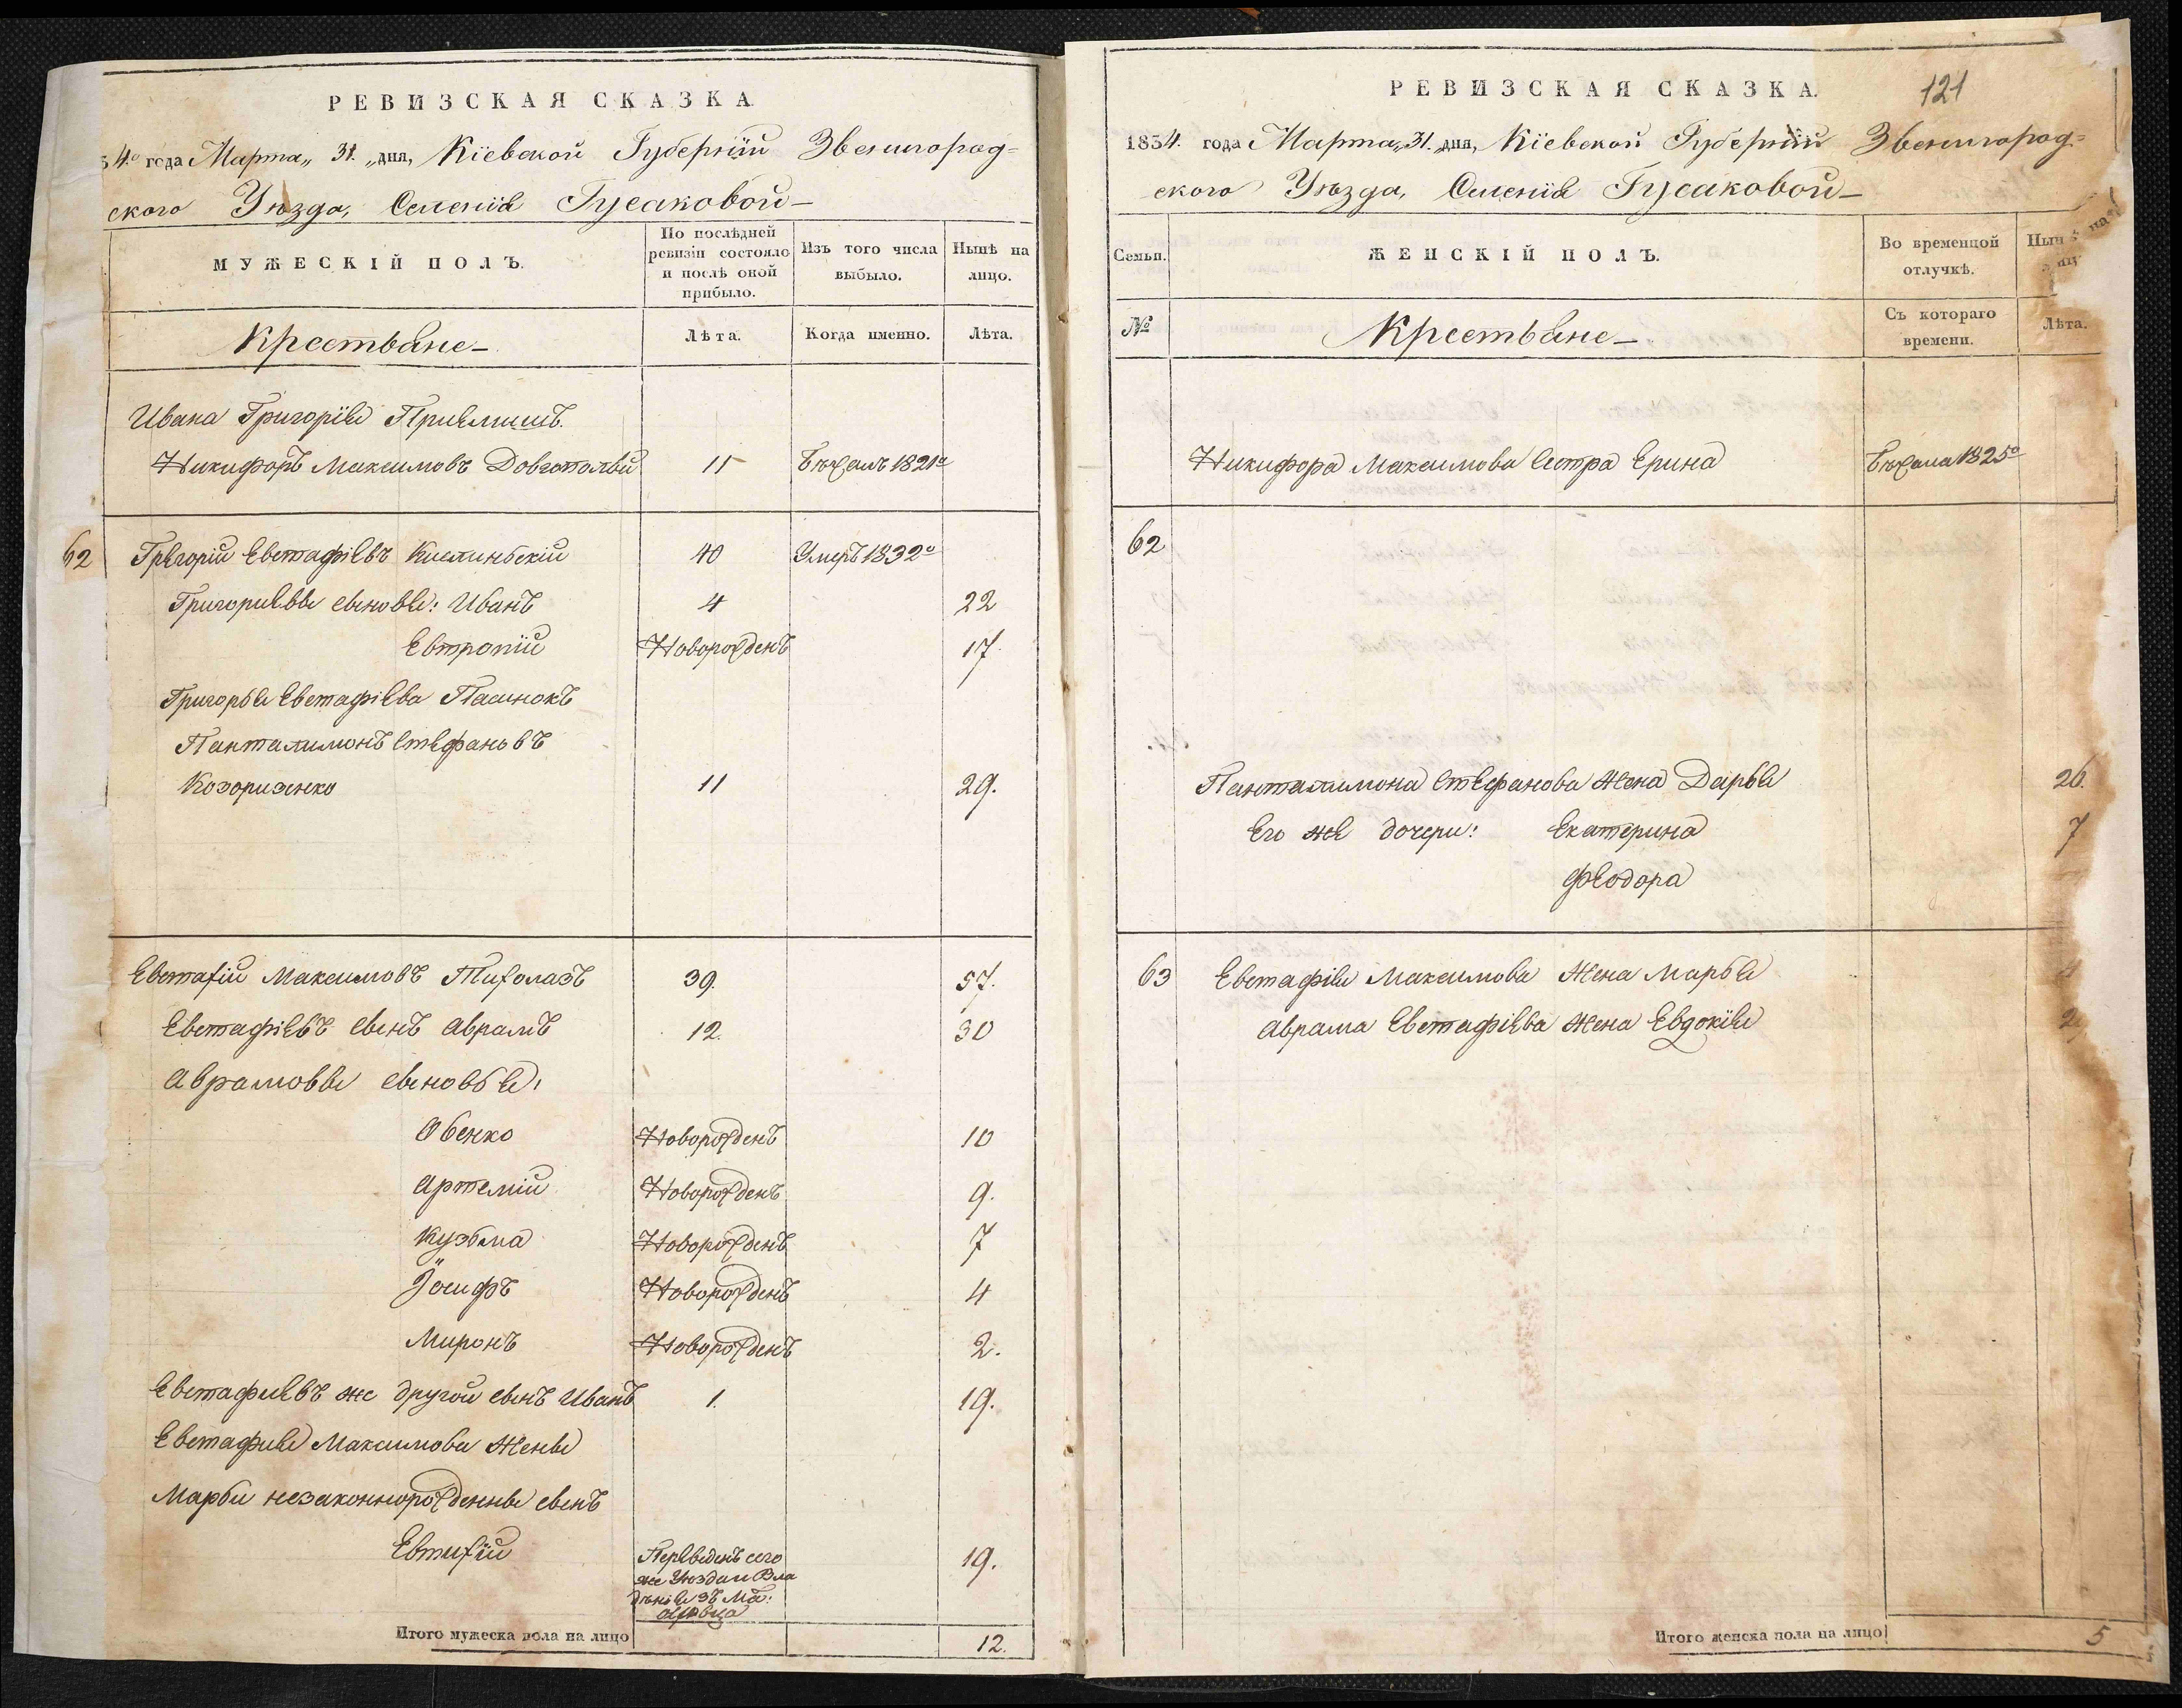 РЕВИЗСКАЯ СКАЗКА.
54.го года Марта „ 31. „ дня, Кіевской Губерніи Звенигород=
ского Уѣзда, Селенія Гусаковой—
МУЖЕСКІЙ ПОЛЪ.
По послѣдней
ревизіи состояло
и послѣ оной
прибыло.
Изъ того числа
выбыло.
Нынѣ на
лицо.
Крестьяне—
Лѣта.
Когда именно.
Лѣта.
Ивана Григорія Пріемишъ.
Никифоръ Максимовъ Довгополый 11 Бѣжалъ 1821го
62 Григорій Евстафіевъ Кислинскій 40 Умеръ 1832го
Григориевы сыновья: Иванъ 4 22
Евтропій Новорожденъ 17.
Григорья Евстафіева Пасинокъ
Панталимонъ Стефановъ
Козориженко 11 29.
Евстафій Максимовъ 39. 57.
Евстафіевъ сынъ Аврамъ 12. 30
Аврамовы сыновья:
Овенко Новорожденъ 10
Артемій Новорожденъ 9.
Кузьма Новорожденъ 7
Іосифъ Новорожденъ 4
Миронъ Новорожденъ 2.
Евстафиевъ же другой сынъ Иванъ 1. 19.
Евстафия Максимова Жены
Марьи незаконнорожденны сынъ
Евтихій 19.
Переведенъ сего
же Уѣзда и Вла
дѣнія зъ Мѣ:
Итого мужеска пола на лицо 12.
РЕВИЗСКАЯ СКАЗКА.
121
1854. года Марта „ 31. „ дня, Кіевской Губерніи Звенигород=
ского Уѣзда, Селенія Гусаковой—
Семьи.
ЖЕНСКІЙ ПОЛЪ.
Во временной
отлучкѣ.
№
Крестьяне—
Съ котораго
времени.
Лѣта.
Никифора Максимова Сестра Ерина Бѣжала 1825го
62
Панталимона Стефанова Жена Дарья 26.
Его же дочери: Екатерина 7
Феодора
63 Евстафія Максимова Жена Марья
Аврама Евстафіева Жена Евдокія
Итого женска пола на лицо 5